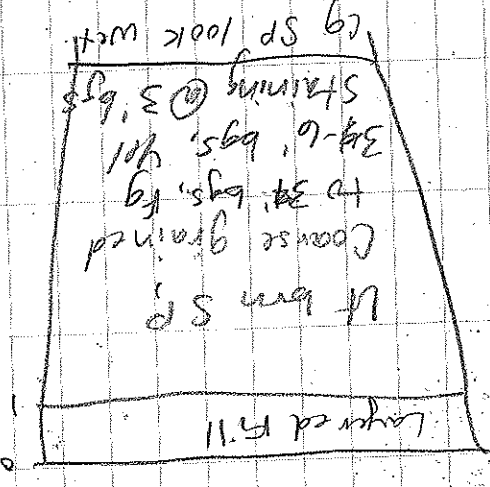 0
Layered Fill
1
Lt brn SP,
Coarse grained
to 3' bgs, Fg
3-6' bgs, Yel
Staining @ 3' bgs
Cg SP look wet